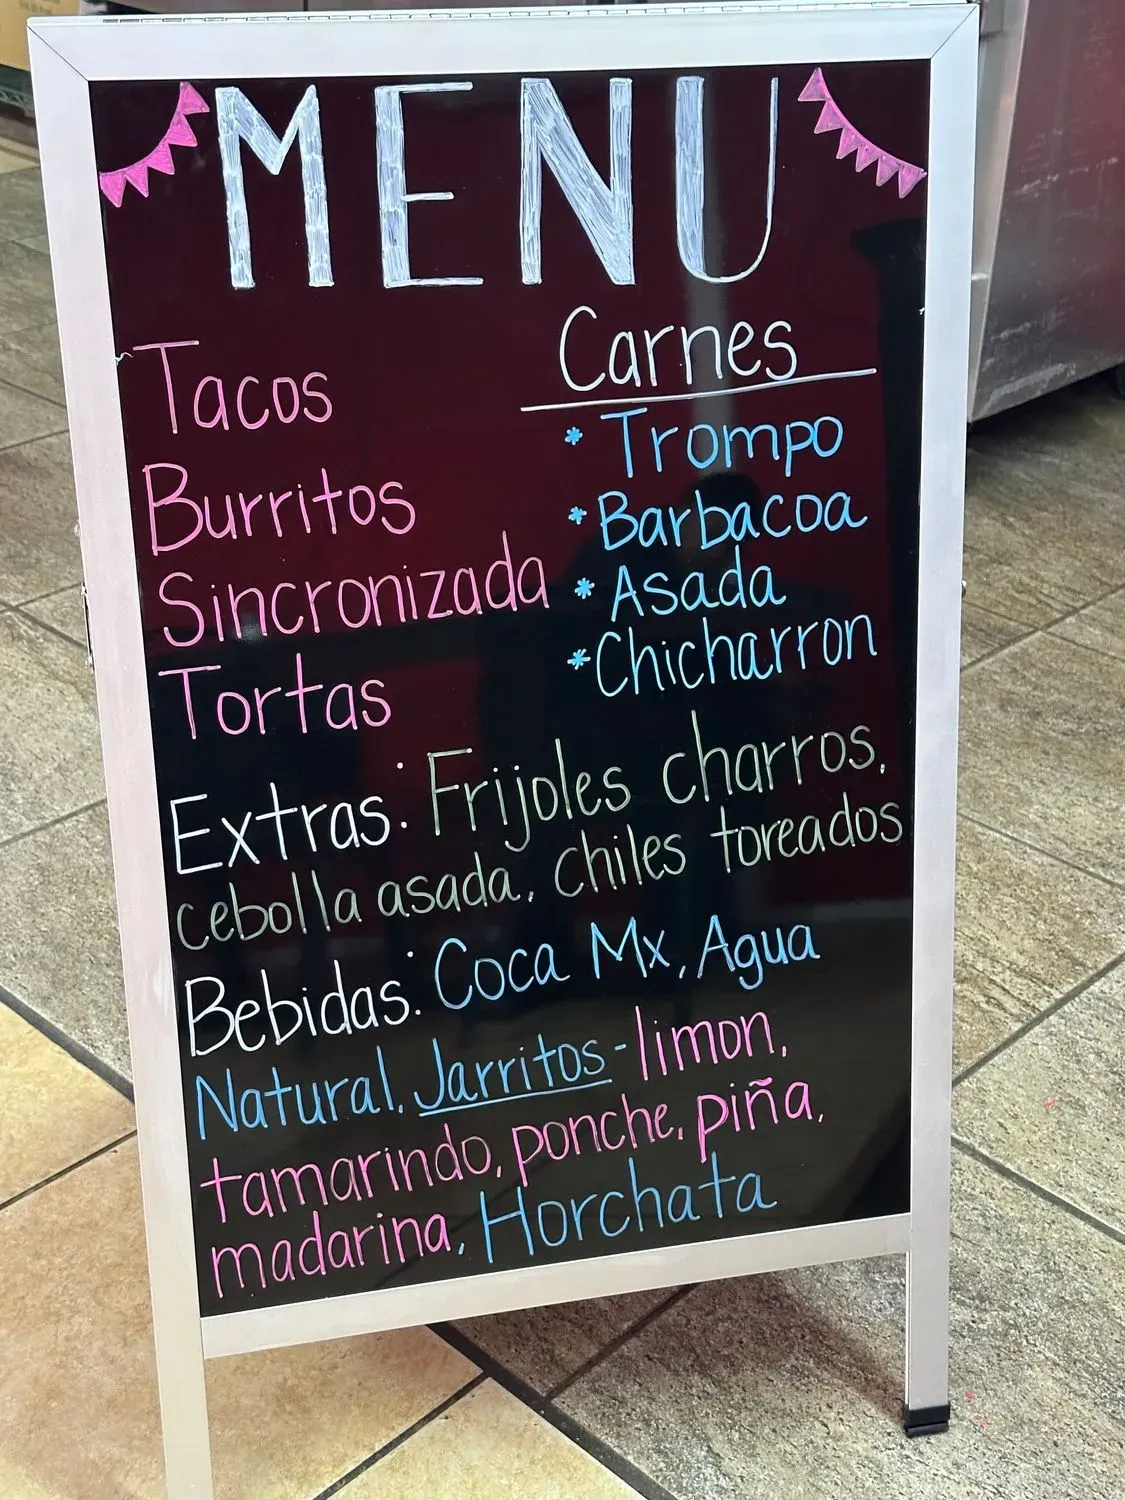 MENU
Tacos
Burritos
Sincronizada
Tortas
Carnes
* Trompo
* Barbacoa
* Asada
* Chicharron
Extras: Frijoles charros,
cebolla asada, chiles toreados
Bebidas: Coca Mx, Agua
Natural, Jarritos - limon,
tamarindo, ponche, piña,
madarina, Horchata